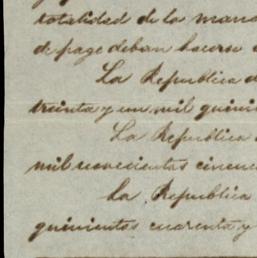 totalidad de la mane
de pago deban hacerse
La Republica d
treinta y un mil quini
La Republica
mil novecientos cincue
La Republica
quinientos cuarenta y